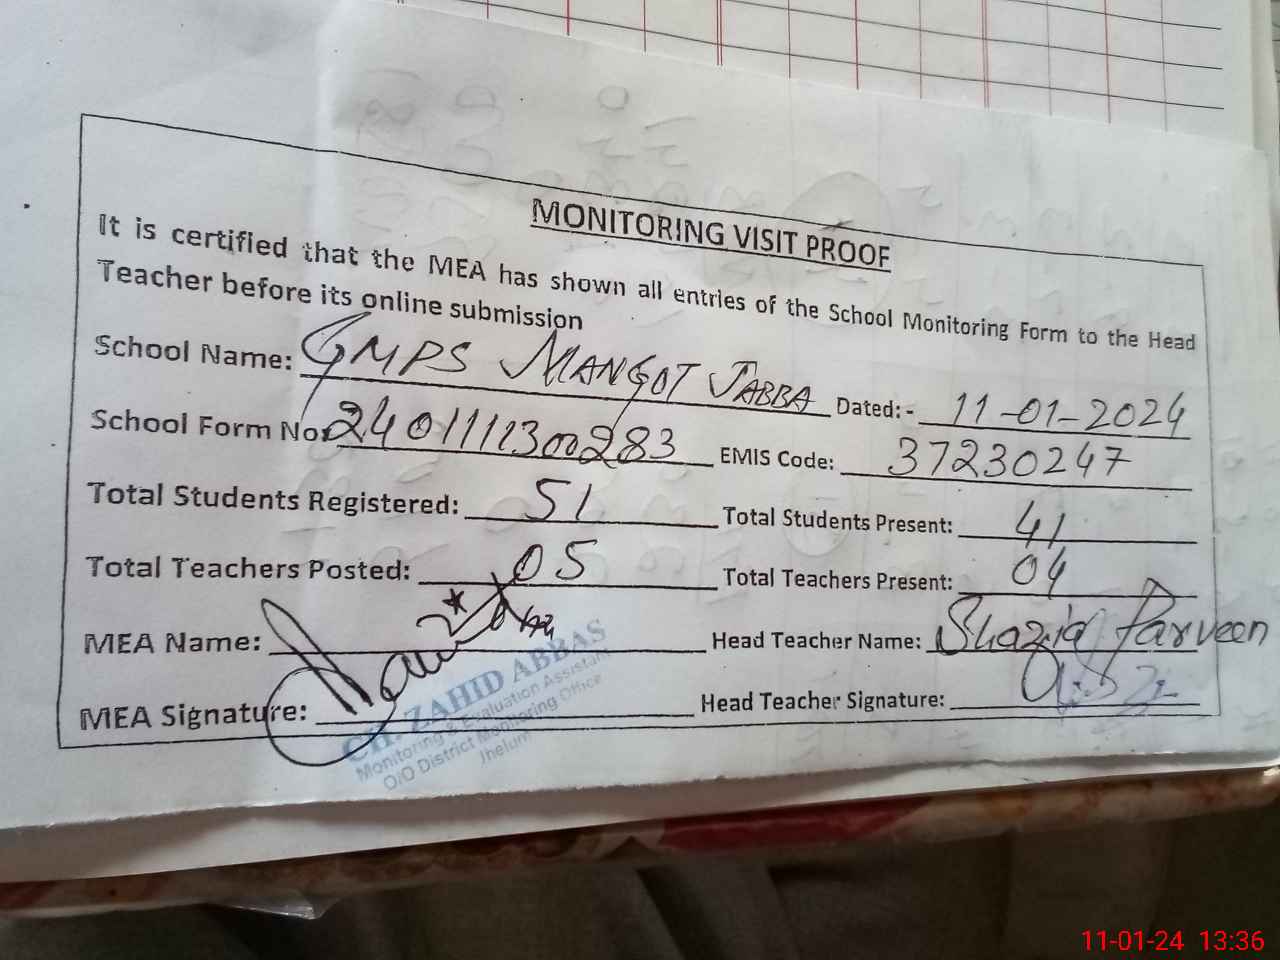 MONITORING VISIT PROOF
It is certified that the MEA has shown all entries of the School Monitoring Form to the Head
Teacher before its online submission
School Name: GMPS MANGOT JABBA Dated:- 11-01-2024
School Form No: 2401111300283 EMIS Code: 37230247
Total Students Registered: 51 Total Students Present: 41
Total Teachers Posted: 05 Total Teachers Present: 04
MEA Name: Head Teacher Name: Shazia Parveen
MEA Signature: Head Teacher Signature:
CH. ZAHID ABBAS
Monitoring & Evaluation Assistant
O/O District Monitoring Office
Jhelum
11-01-24 13:36